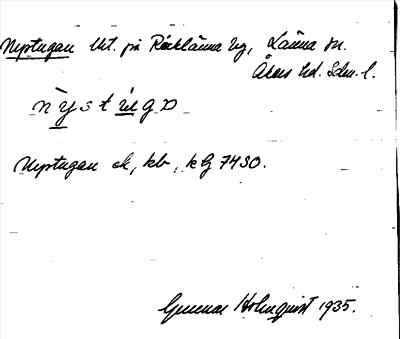 Nystugan lht. på Räcklänna äg, Länna sn.
Åkers hd. Sdm. l.
nỳstúgɒ
Nystugan ek, kb, kG 74 SO.
Gunnar Holmquist 1935.